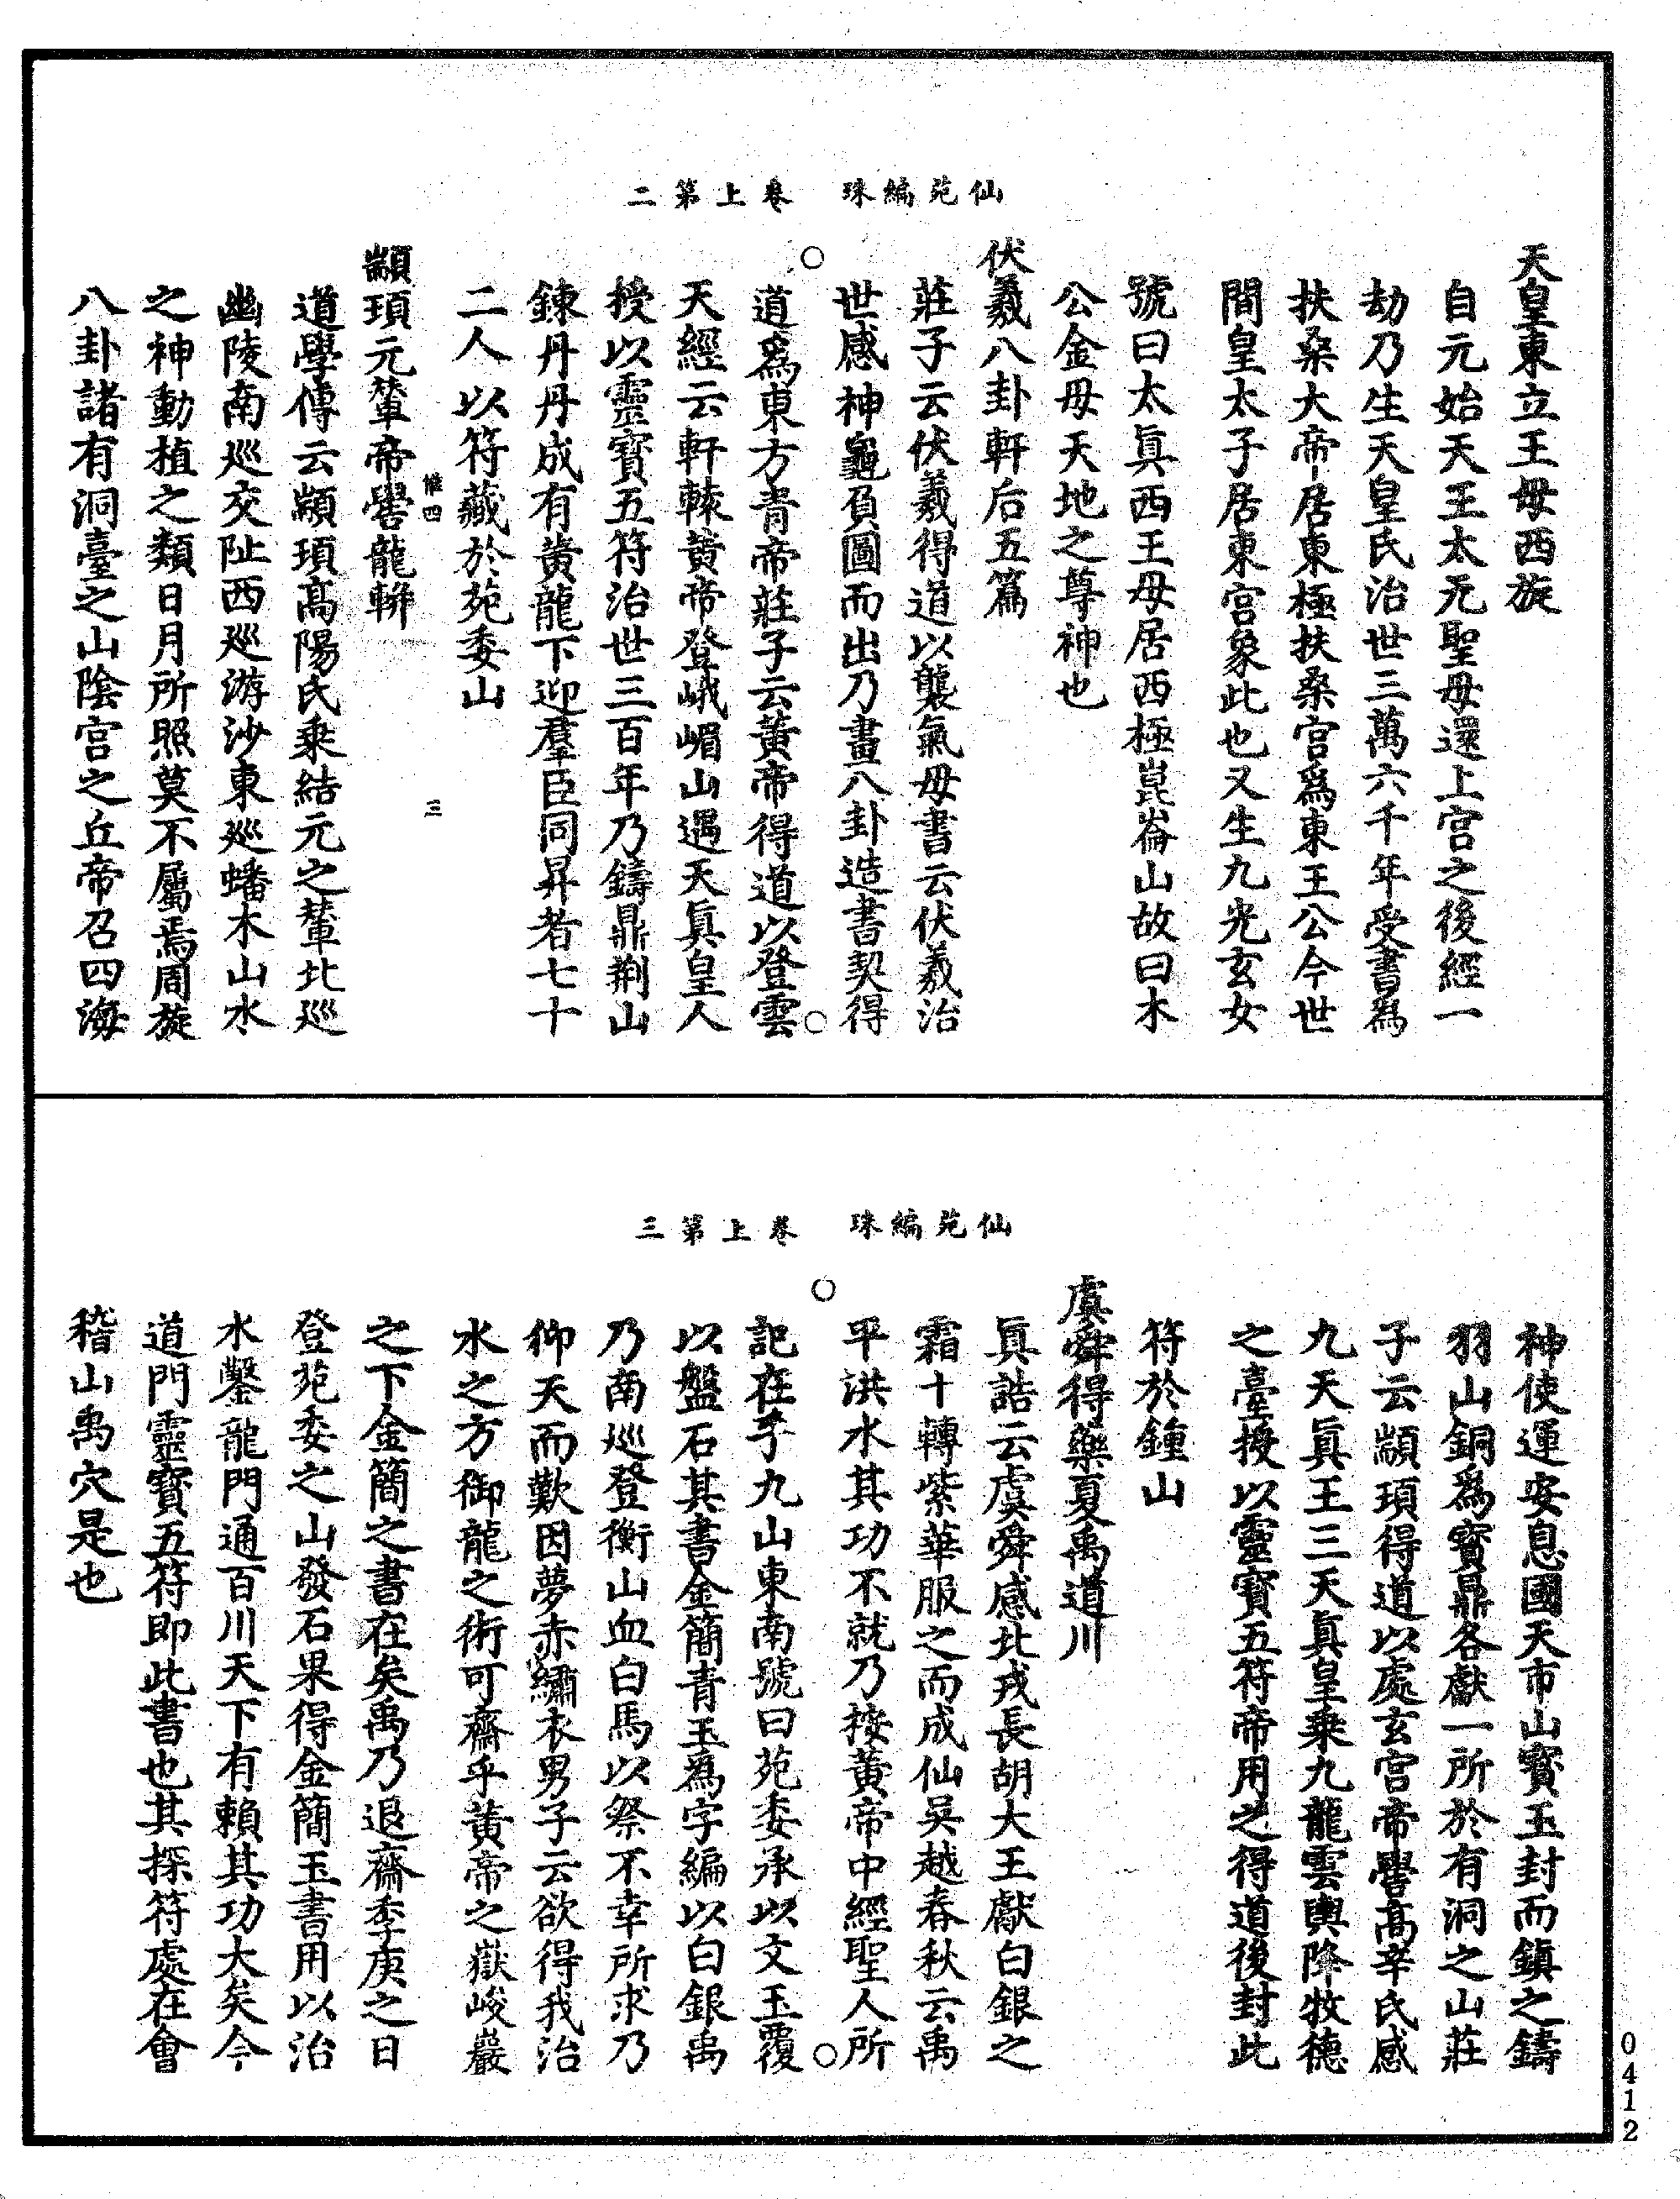 仙苑編珠　卷上第二
天皇東立王母西旋
自元始天王太元聖母還上宮之後經一
劫乃生天皇氏治世三萬六千年受書爲
扶桑大帝居東極扶桑宮爲東王公今世
間皇太子居東宮象此也又生九光玄女
號曰太眞西王母居西極崑崙山故曰木
公金母天地之尊神也
伏羲八卦軒后五篇
莊子云伏羲得道以襲氣母書云伏羲治
世感神龜負圖而出乃畫八卦造書契得
道爲東方青帝莊子云黃帝得道以登雲
天經云軒轅黃帝登峨嵋山遇天眞皇人
授以靈寶五符治世三百年乃鑄鼎荆山
鍊丹丹成有黃龍下迎羣臣同昇者七十
二人以符藏於苑委山
惟四　三
顓頊元輦帝嚳龍軿
道學傳云顓頊高陽氏乘結元之輦北廵
幽陵南廵交阯西廵游沙東廵蟠木山水
之神動植之類日月所照莫不屬焉周旋
八卦諸有洞臺之山陰宮之丘帝召四海
仙苑編珠　卷上第三
神使運安息國天市山寶玉封而鎮之鑄
羽山銅爲寶鼎各獻一所於有洞之山莊
子云顓頊得道以處玄宮帝嚳高辛氏感
九天眞王三天眞皇乘九龍雲輿降牧德
之臺授以靈寶五符帝用之得道後封此
符於鍾山
虞舜得藥夏禹道川
眞誥云虞舜感北戎長胡大王獻白銀之
霜十轉紫華服之而成仙吳越春秋云禹
平洪水其功不就乃按黃帝中經聖人所
記在乎九山東南號曰苑委承以文玉覆
以盤石其書金簡青玉爲字編以白銀禹
乃南廵登衡山血白馬以祭不幸所求乃
仰天而歎因夢赤繡衣男子云欲得我治
水之方御龍之術可齋乎黃帝之嶽峻巖
之下金簡之書在矣禹乃退齋季庚之日
登苑委之山發石果得金簡玉書用以治
水鑿龍門通百川天下有賴其功大矣今
道門靈寶五符即此書也其探符處在會
稽山禹穴是也
0412